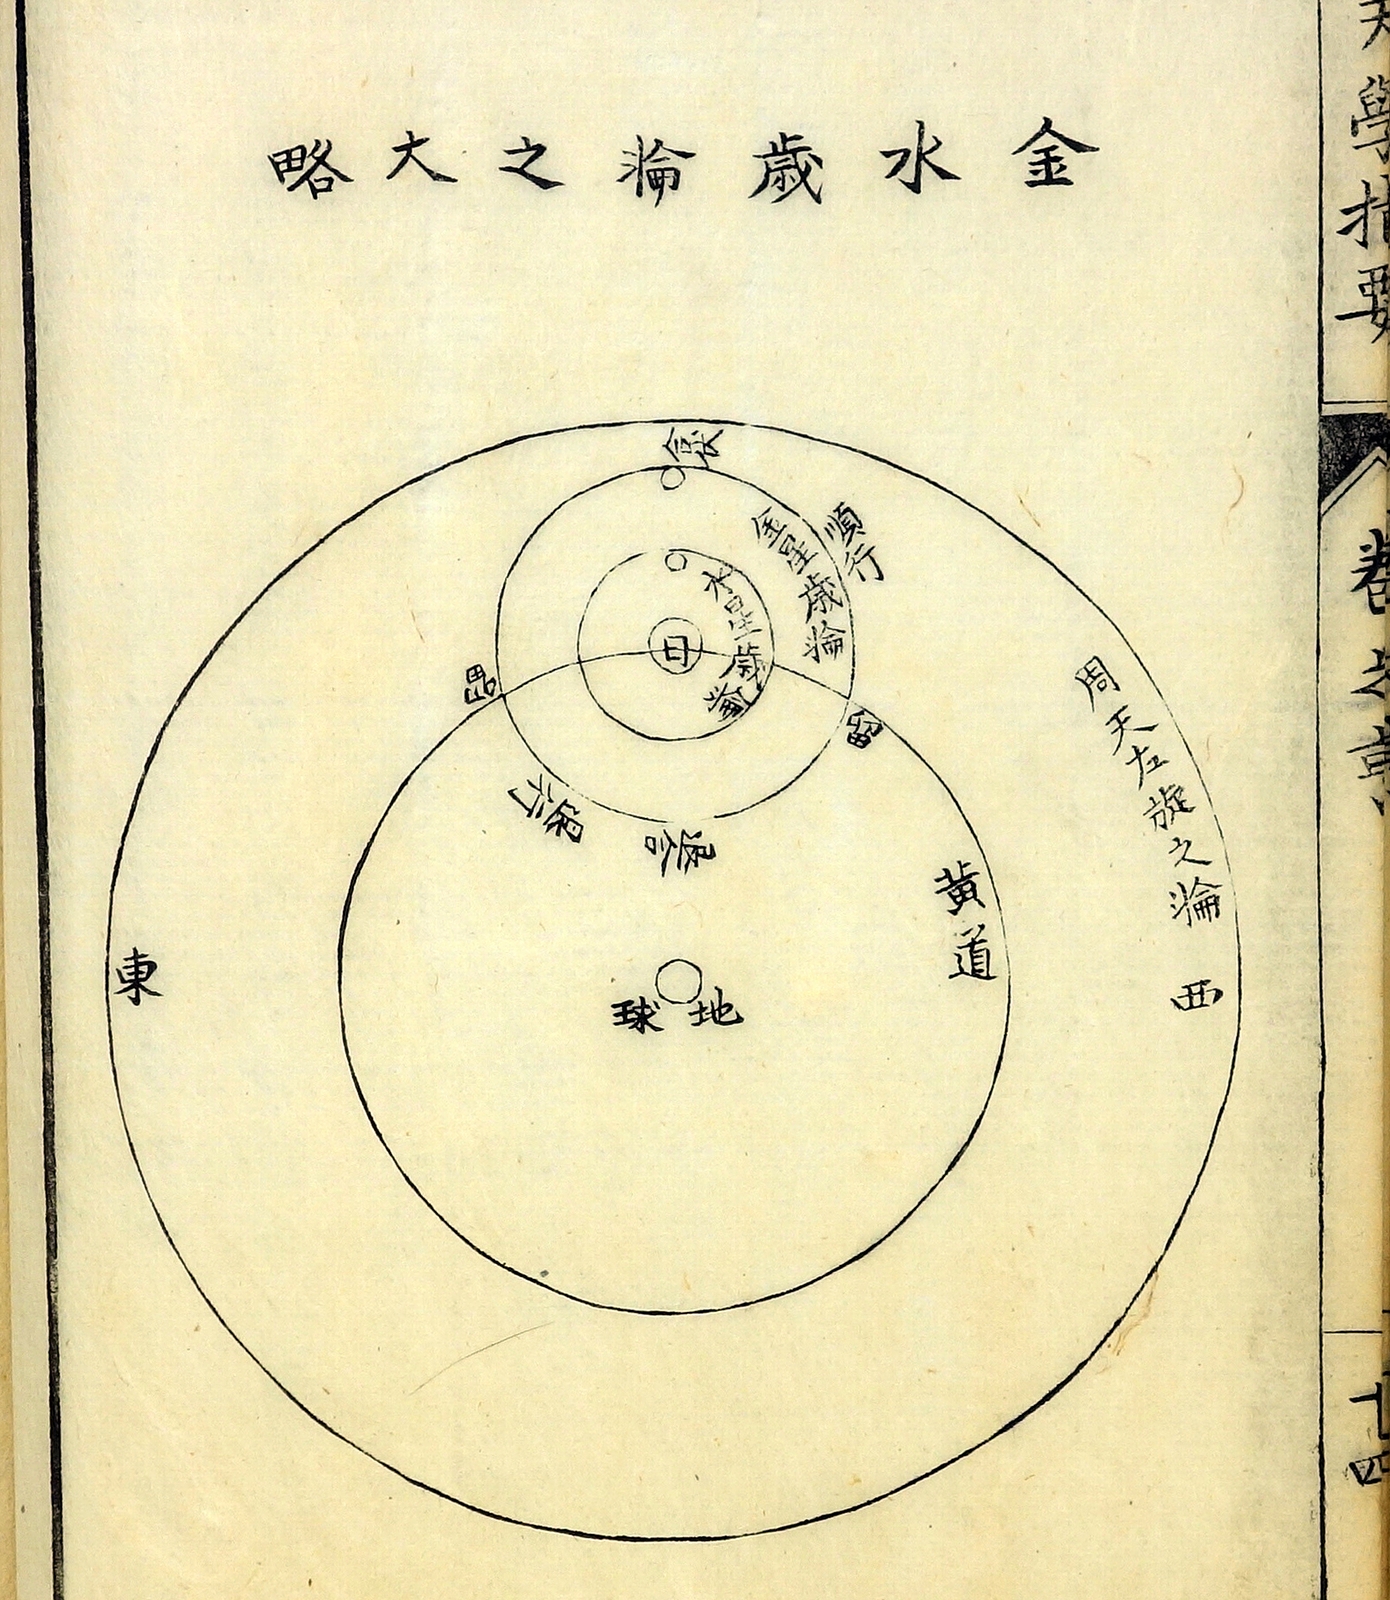 金水歳輪之大略
合伏
順行
金星歳輪
水星歳輪
日
留
留
退行
退合
周天左旋之輪
黄道
東
西
地球
天學指要
廿四